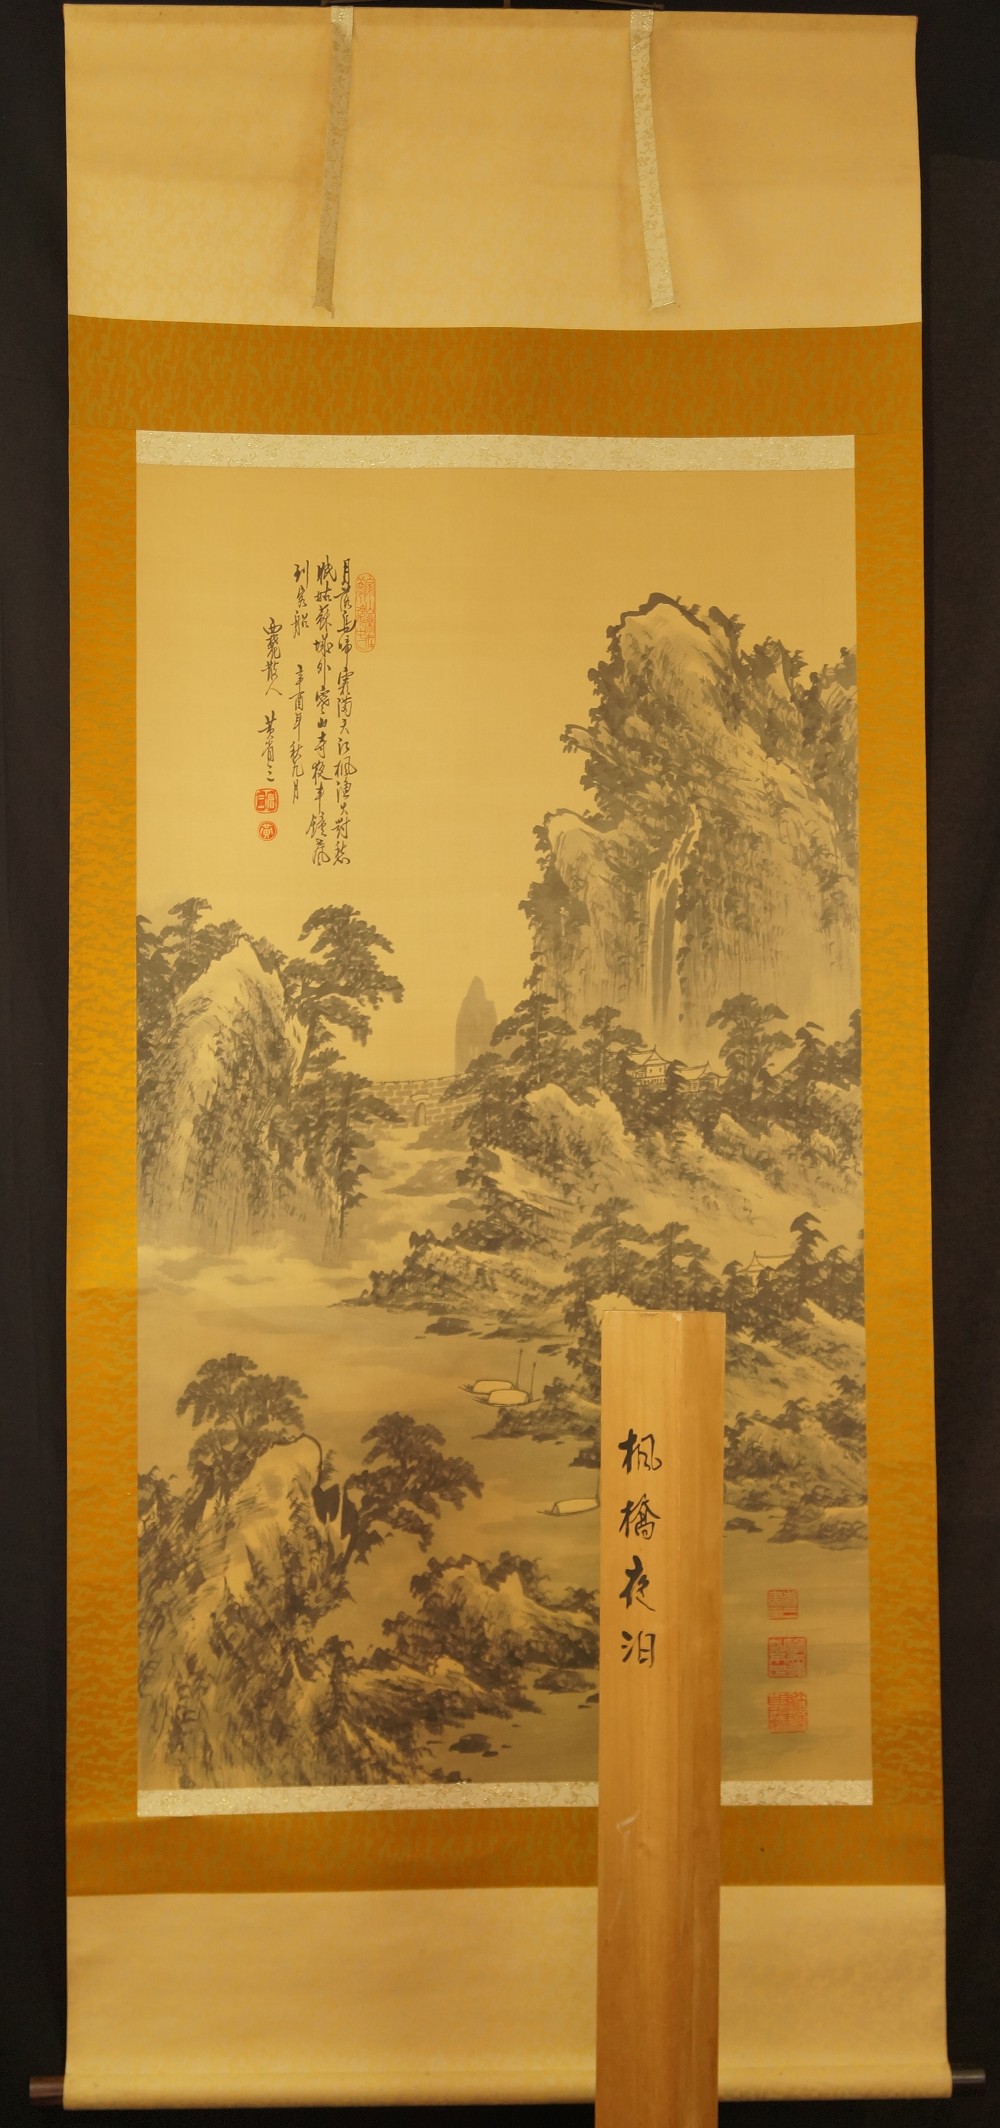 月落烏啼霜滿天江楓漁火對愁
眠姑蘇城外寒山寺夜半鐘聲
到客船 辛酉年秋九月
散人 黄省三
枫橋夜泊